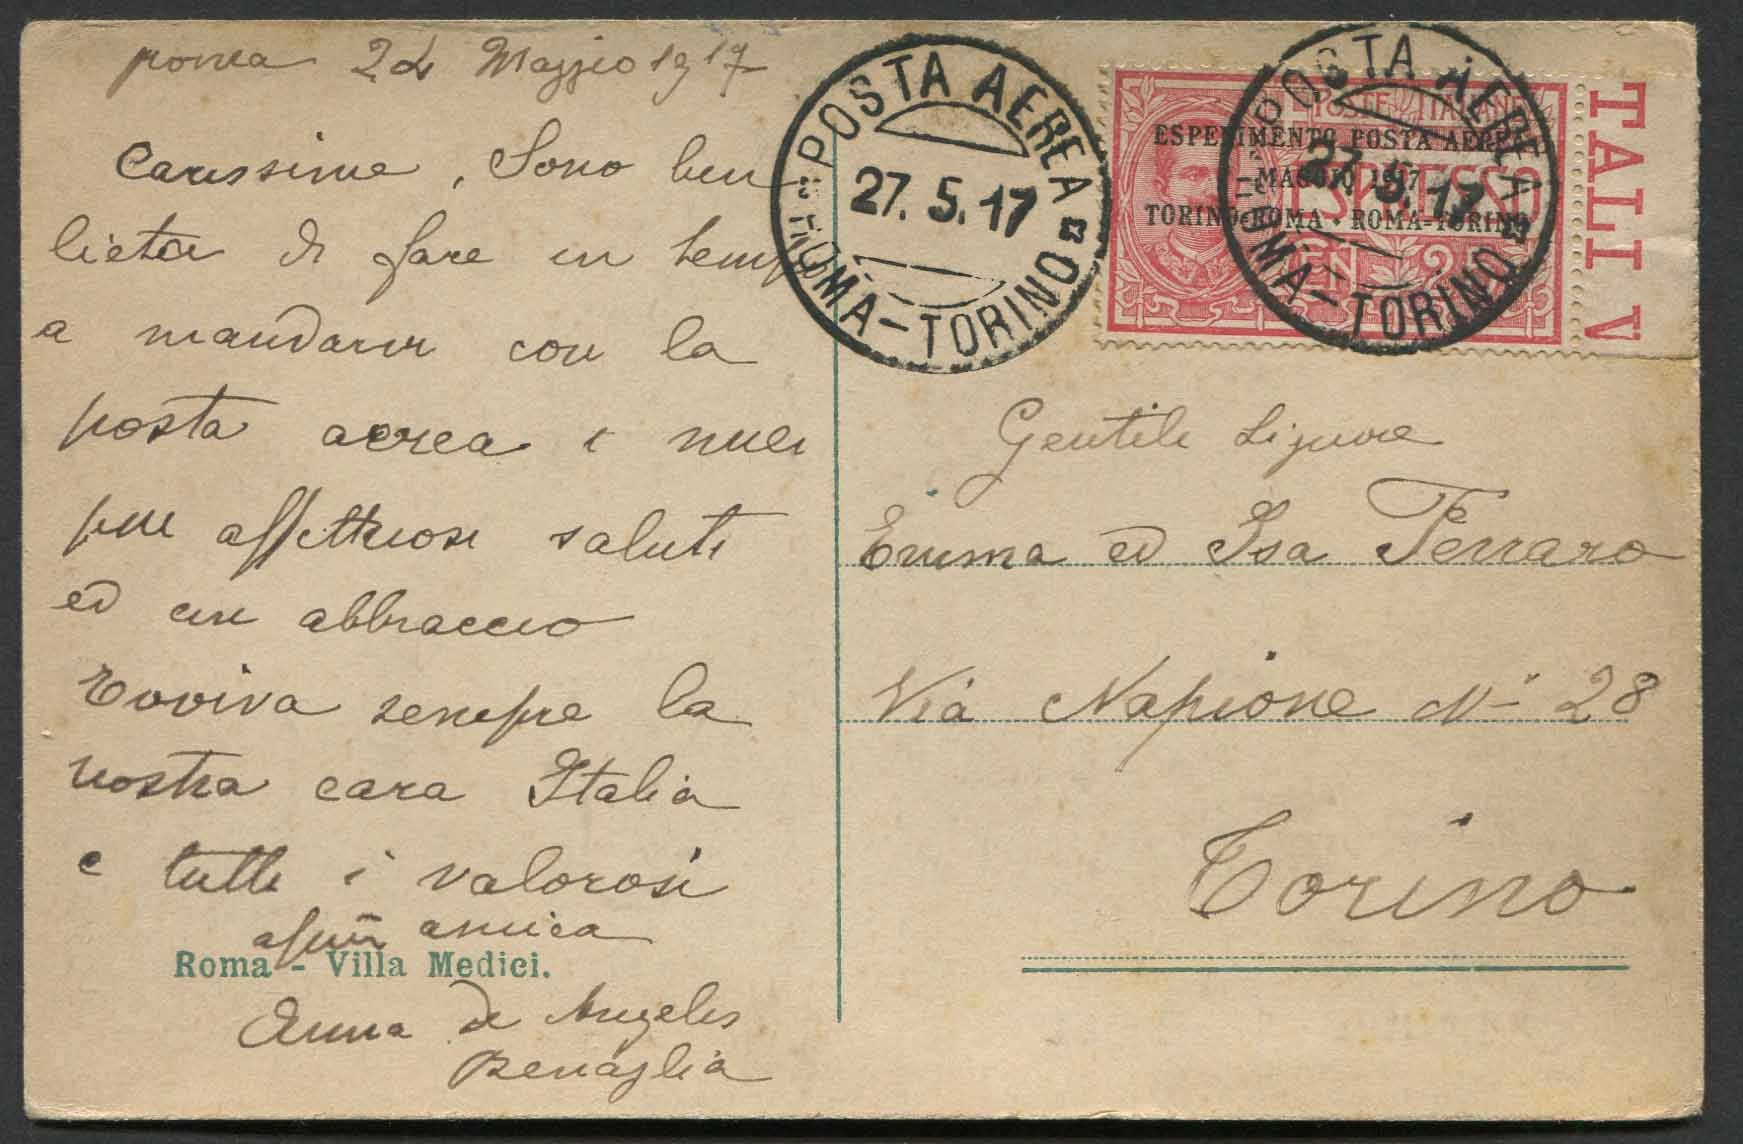 Roma 24 Maggio 1917
Carissime, Sono ben
lieta di fare in tempo
a mandarvi con la
posta aerea i miei
più affettuosi saluti
ed un abbraccio
Evviva sempre la
nostra cara Italia
e tutti i valorosi
amica
Roma - Villa Medici.
Anna de Angelis
Benaglia
POSTA AEREA
27.5.17
ROMA-TORINO
POSTE ITALIANE
ESPERIMENTO POSTA AEREA
MAGGIO 1917
TORINO-ROMA · ROMA-TORINO
ESPRESSO
CEN 25
POSTA AEREA
27.5.17
ROMA-TORINO
TALI V
Gentili Signore
Emma ed Isa Ferraro
Via Napione N° 28
Torino